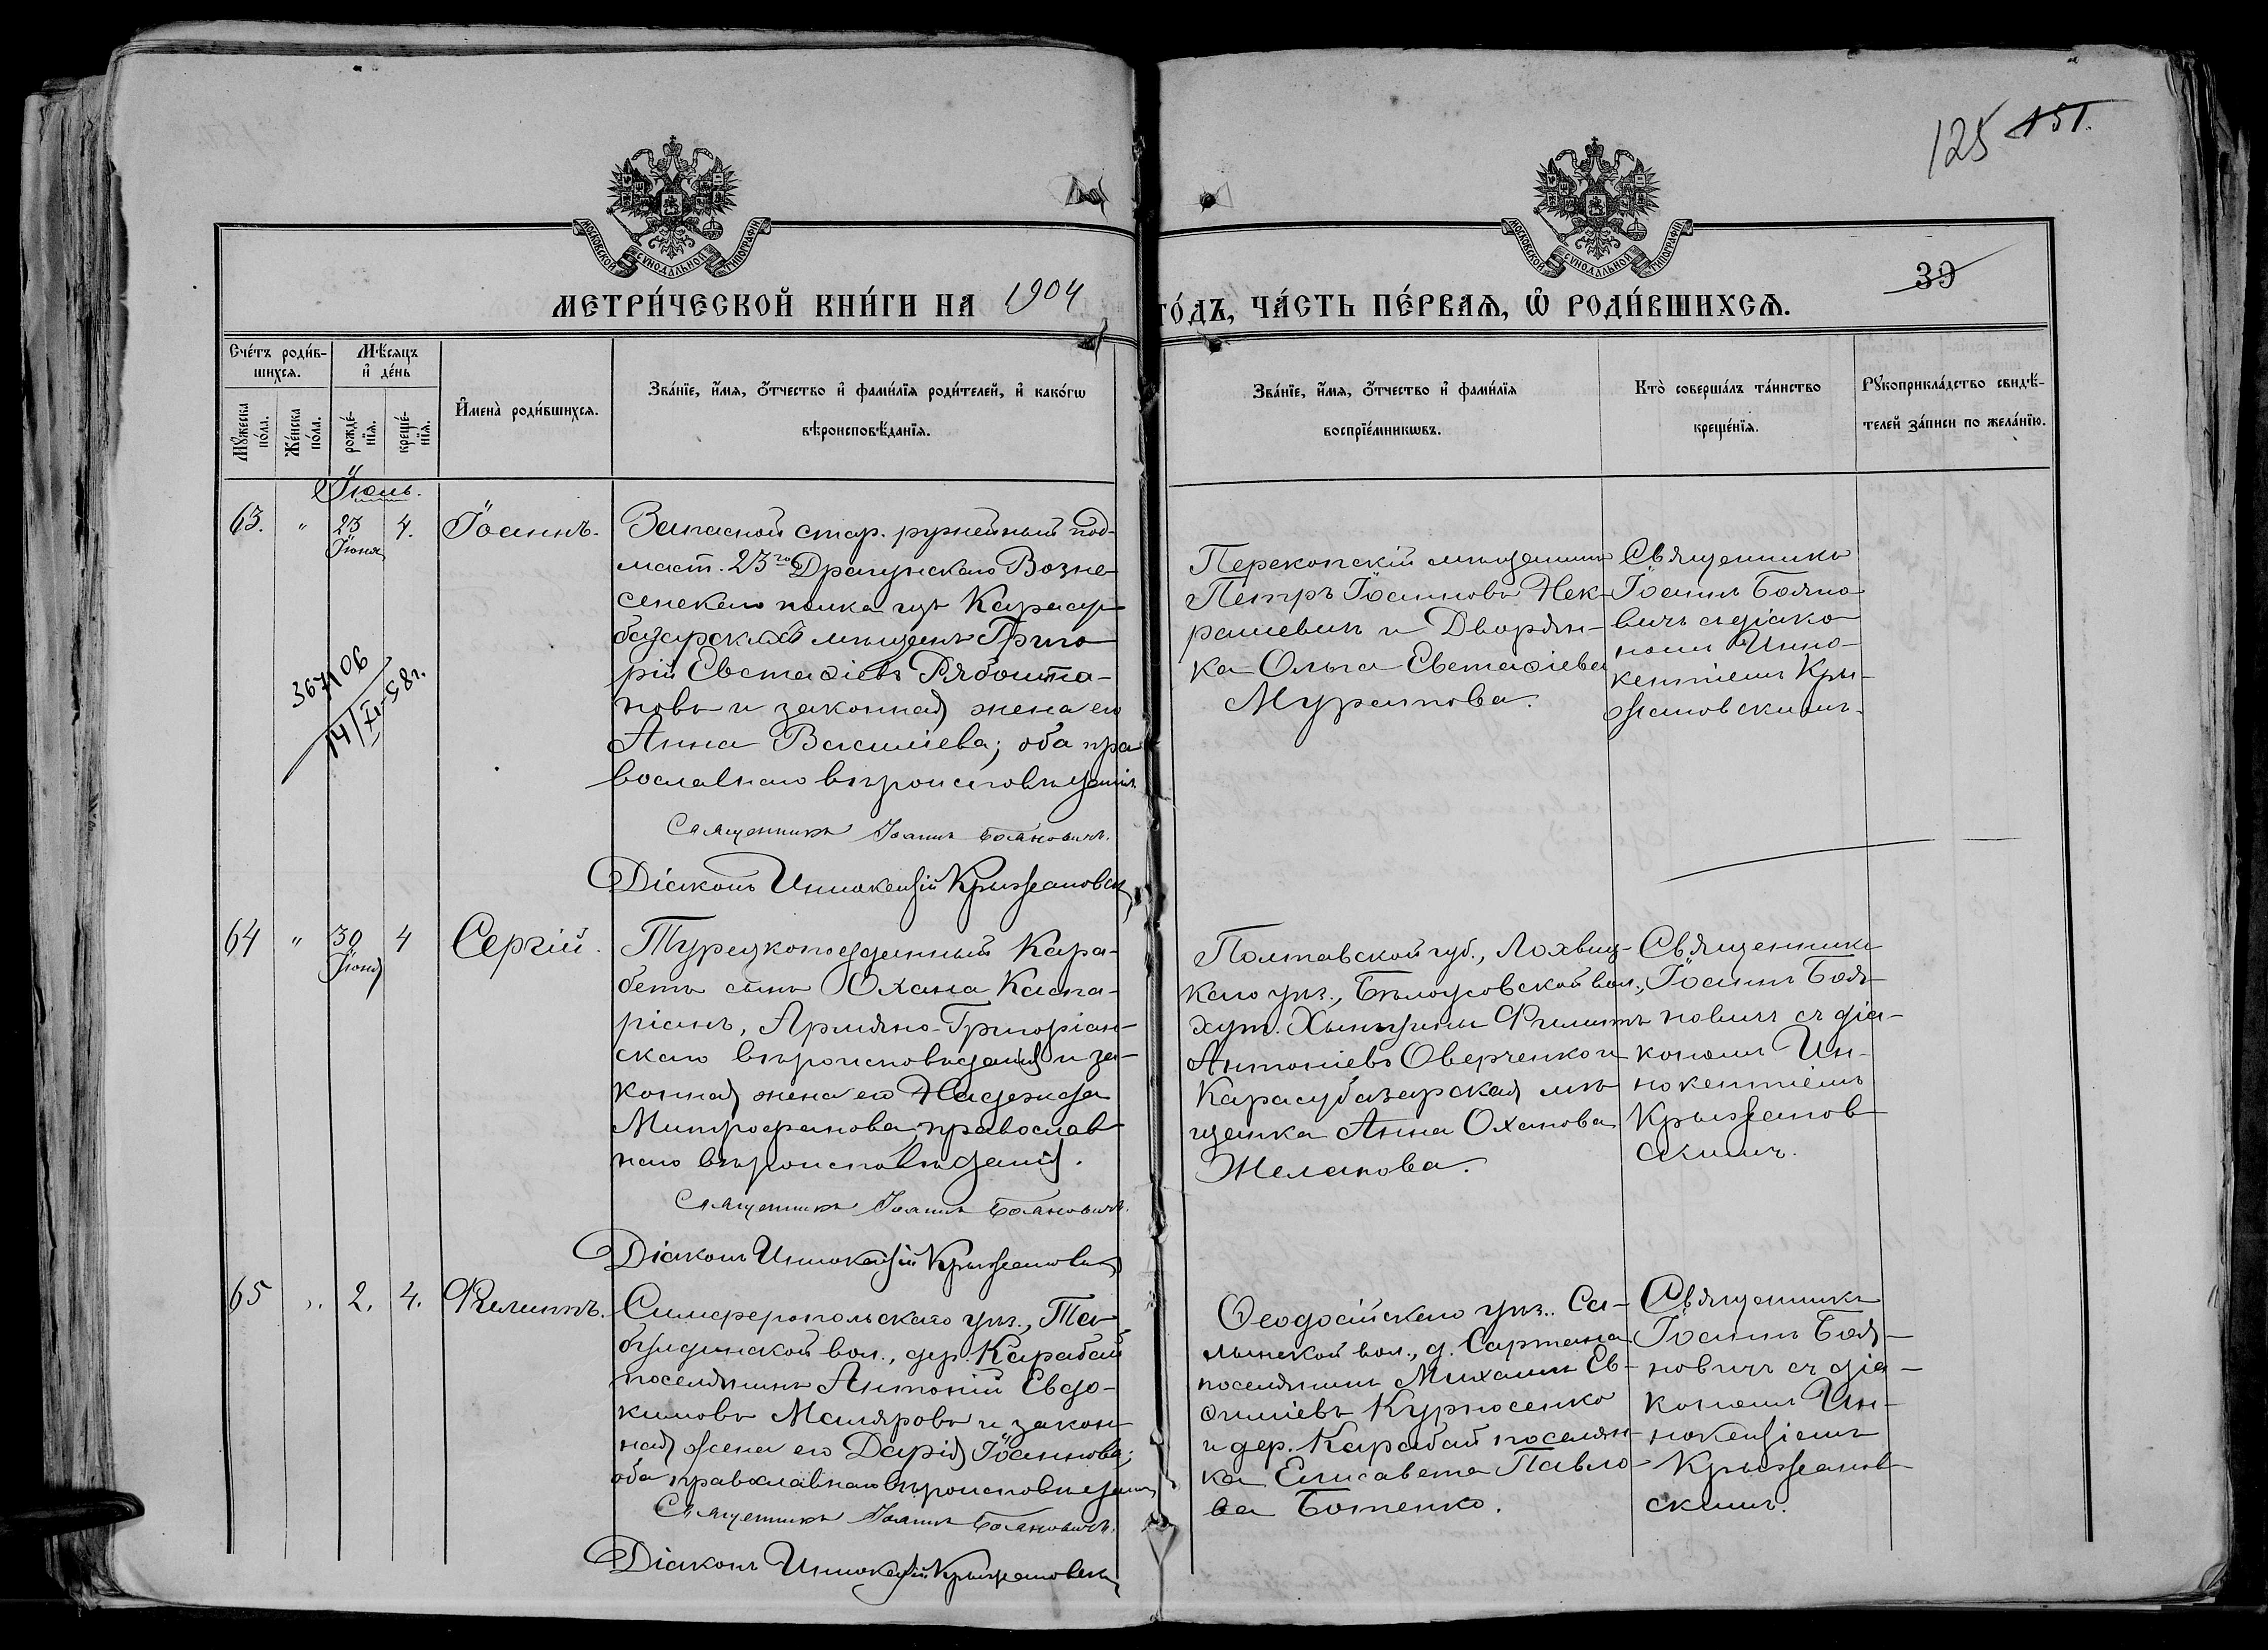 125 151.
МОСКОВСКОЙ СѴНОДАЛЬНОЙ ТИПОГРАФІИ
МОСКОВСКОЙ СѴНОДАЛЬНОЙ ТИПОГРАФІИ
39
МЕТРИ́ЧЕСКОЙ КНИ́ГИ НА 1904 ГО́ДЪ, ЧА́СТЬ ПЕ́РВАѦ, Ѡ҆ РОДИ́ВШИХСѦ.
Сче́тъ роди́в-
шихсѧ.
Мѣ́сѧцъ
и҆ де́нь
Мꙋ́жеска
по́ла.
Же́нска
по́ла.
рожде́-
нїѧ.
креще́-
нїѧ.
И҆мена̀ роди́вшихсѧ.
Зва́нїе, и҆́мѧ, ѻ҆́тчество и҆ фами́лїѧ роди́телей, и҆ како́гѡ
вѣроисповѣ́данїѧ.
Зва́нїе, и҆́мѧ, ѻ҆́тчество и҆ фами́лїѧ
воспрїе́мникѡвъ.
Кто̀ соверша́лъ та́инство
креще́нїѧ.
Рꙋкоприкла́дство свидѣ́-
телей за́писи по жела́нїю.
Іюль.
63. " 23 Іюня 4. Іоаннъ.
Запасной стар. ружейный под-
маст. 23го Драгунскаго Возне-
сенскаго полка изъ Карасу-
базарскихъ мѣщанъ Григо-
рій Евстафіевъ Рябошта-
новъ и законная жена его
Анна Василіева; оба пра-
вославнаго вѣроисповѣданія.
Священникъ Іоаннъ Бояновичъ.
Діаконъ Иннокентій Крыжановскі
Перекопскій мѣщанинъ
Петръ Іоанновъ Нек-
рашевичъ и Дворян-
ка Ольга Евстафіева
Муратова.
Священникъ
Іоаннъ Бояно-
вичъ съ діако-
номъ Инно-
кентіемъ Кры-
жановскимъ.
367/06
14/XI-58г.
64 " 30 Іюня 4 Сергій.
Турецкоподданный Кара-
бетъ сынъ Охана Каспа-
ріанъ, Армяно-Григоріан-
скаго вѣроисповѣданія и за-
конная жена его Надежда
Митрофанова, православ-
наго вѣроисповѣданія.
Священникъ Іоаннъ Бояновичъ.
Діаконъ Иннокентій Крыжановскі
Полтавской губ., Лохвиц-
каго уѣз., Бѣлоусовской вол.,
хут. Филиппъ
Антоніевъ Оверченко и
Карасубазарская мѣ-
щанка Анна Оханова
Желанова.
Священникъ
Іоаннъ Боя-
новичъ съ діа-
кономъ Ин-
нокентіемъ
Крыжанов-
скимъ.
65 " 2. 4. Филиппъ.
Симферопольскаго уѣз., Та-
булдинской вол., дер. Карабай
поселянинъ Антоній Евдо-
кимовъ Маляровъ и закон-
ная жена его Дарія Іоаннова;
оба православнаго вѣроисповѣданія
Священникъ Іоаннъ Бояновичъ.
Діаконъ Иннокентій Крыжановскі
Ѳеодосійскаго уѣз., Са-
лынской вол., д. Сартана
поселянинъ Михаилъ Ев-
фиміевъ Курносенко
и дер. Карабай поселян-
ка Елисавета Павло-
ва Ботенко.
Священникъ
Іоаннъ Боя-
новичъ съ діа-
кономъ Ин-
нокентіемъ
Крыжанов-
скимъ.